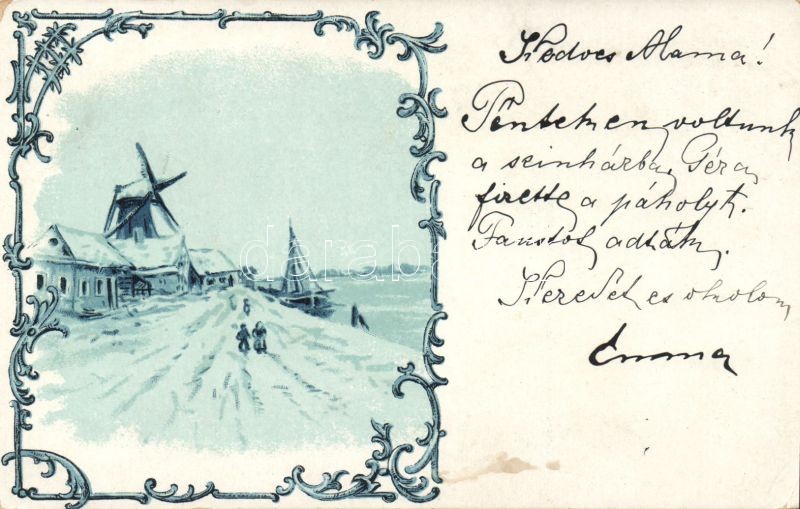 Kedves Mama!
Pénteken voltunk
a szinházba. Géza
fizette a páholyt.
Faustot adták.
Szeretet es csokolom
Emma
darabanth